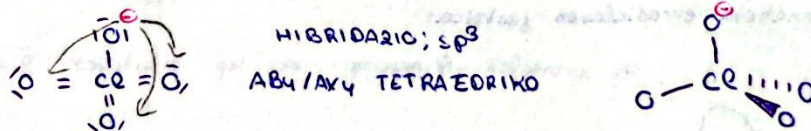 |O|⊖
O = Cl = O
O
HIBRIDAZIO; sp³
AB4/AX4 TETRAEDRIKO
O⊖
O Cl O
O